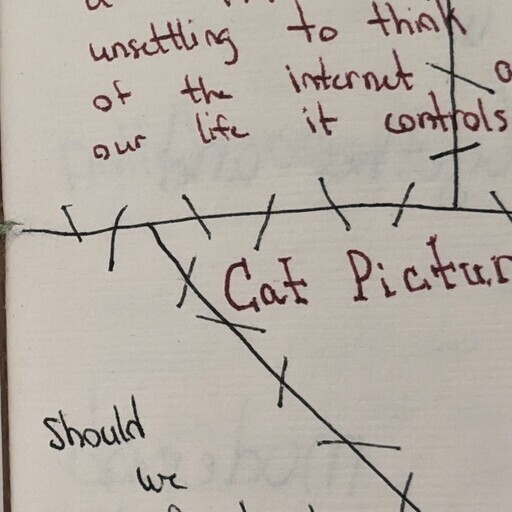 unsettling to think
of the internet
our life it controls
Cat Pictur
should
we